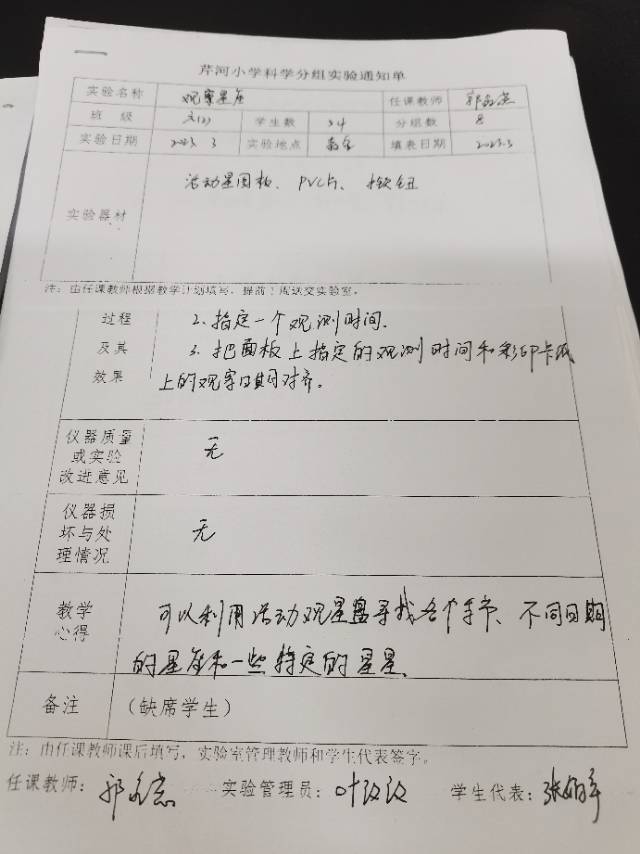 芹河小学科学分组实验通知单
实验名称 观察星座 任课教师
班 级 学生数 34 分组数 8
实验日期 2023.3 实验地点 填表日期 2023.3
实验器材 活动星图板、PVC片、按钮
注:由任课教师根据教学计划填写,提前1周送交实验室。
过程 2.指定一个观测时间.
及其 3.把面板上指定的观测时间和彩印卡纸
效果 上的观察日期对齐。
仪器质量
或实验 无
改进意见
仪器损
坏与处 无
理情况
教学 可以利用活动观星盘寻找各个季节、不同日期
心得 的星座和一些特定的星星.
备注 (缺席学生)
注:由任课教师课后填写,实验室管理教师和学生代表签字。
任课教师: 实验管理员: 学生代表: